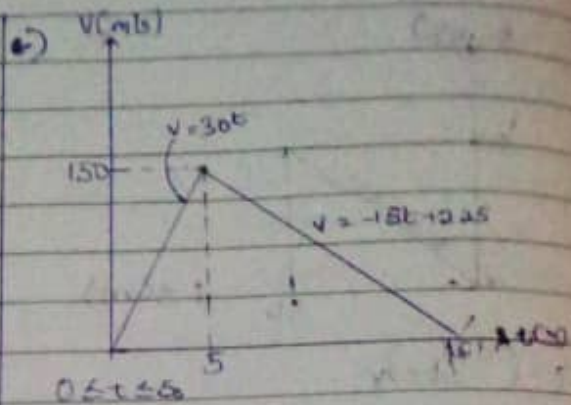 V(m/s)
v=30t
150
v = -15t+225
5
15
t(s)
0≤t≤5s